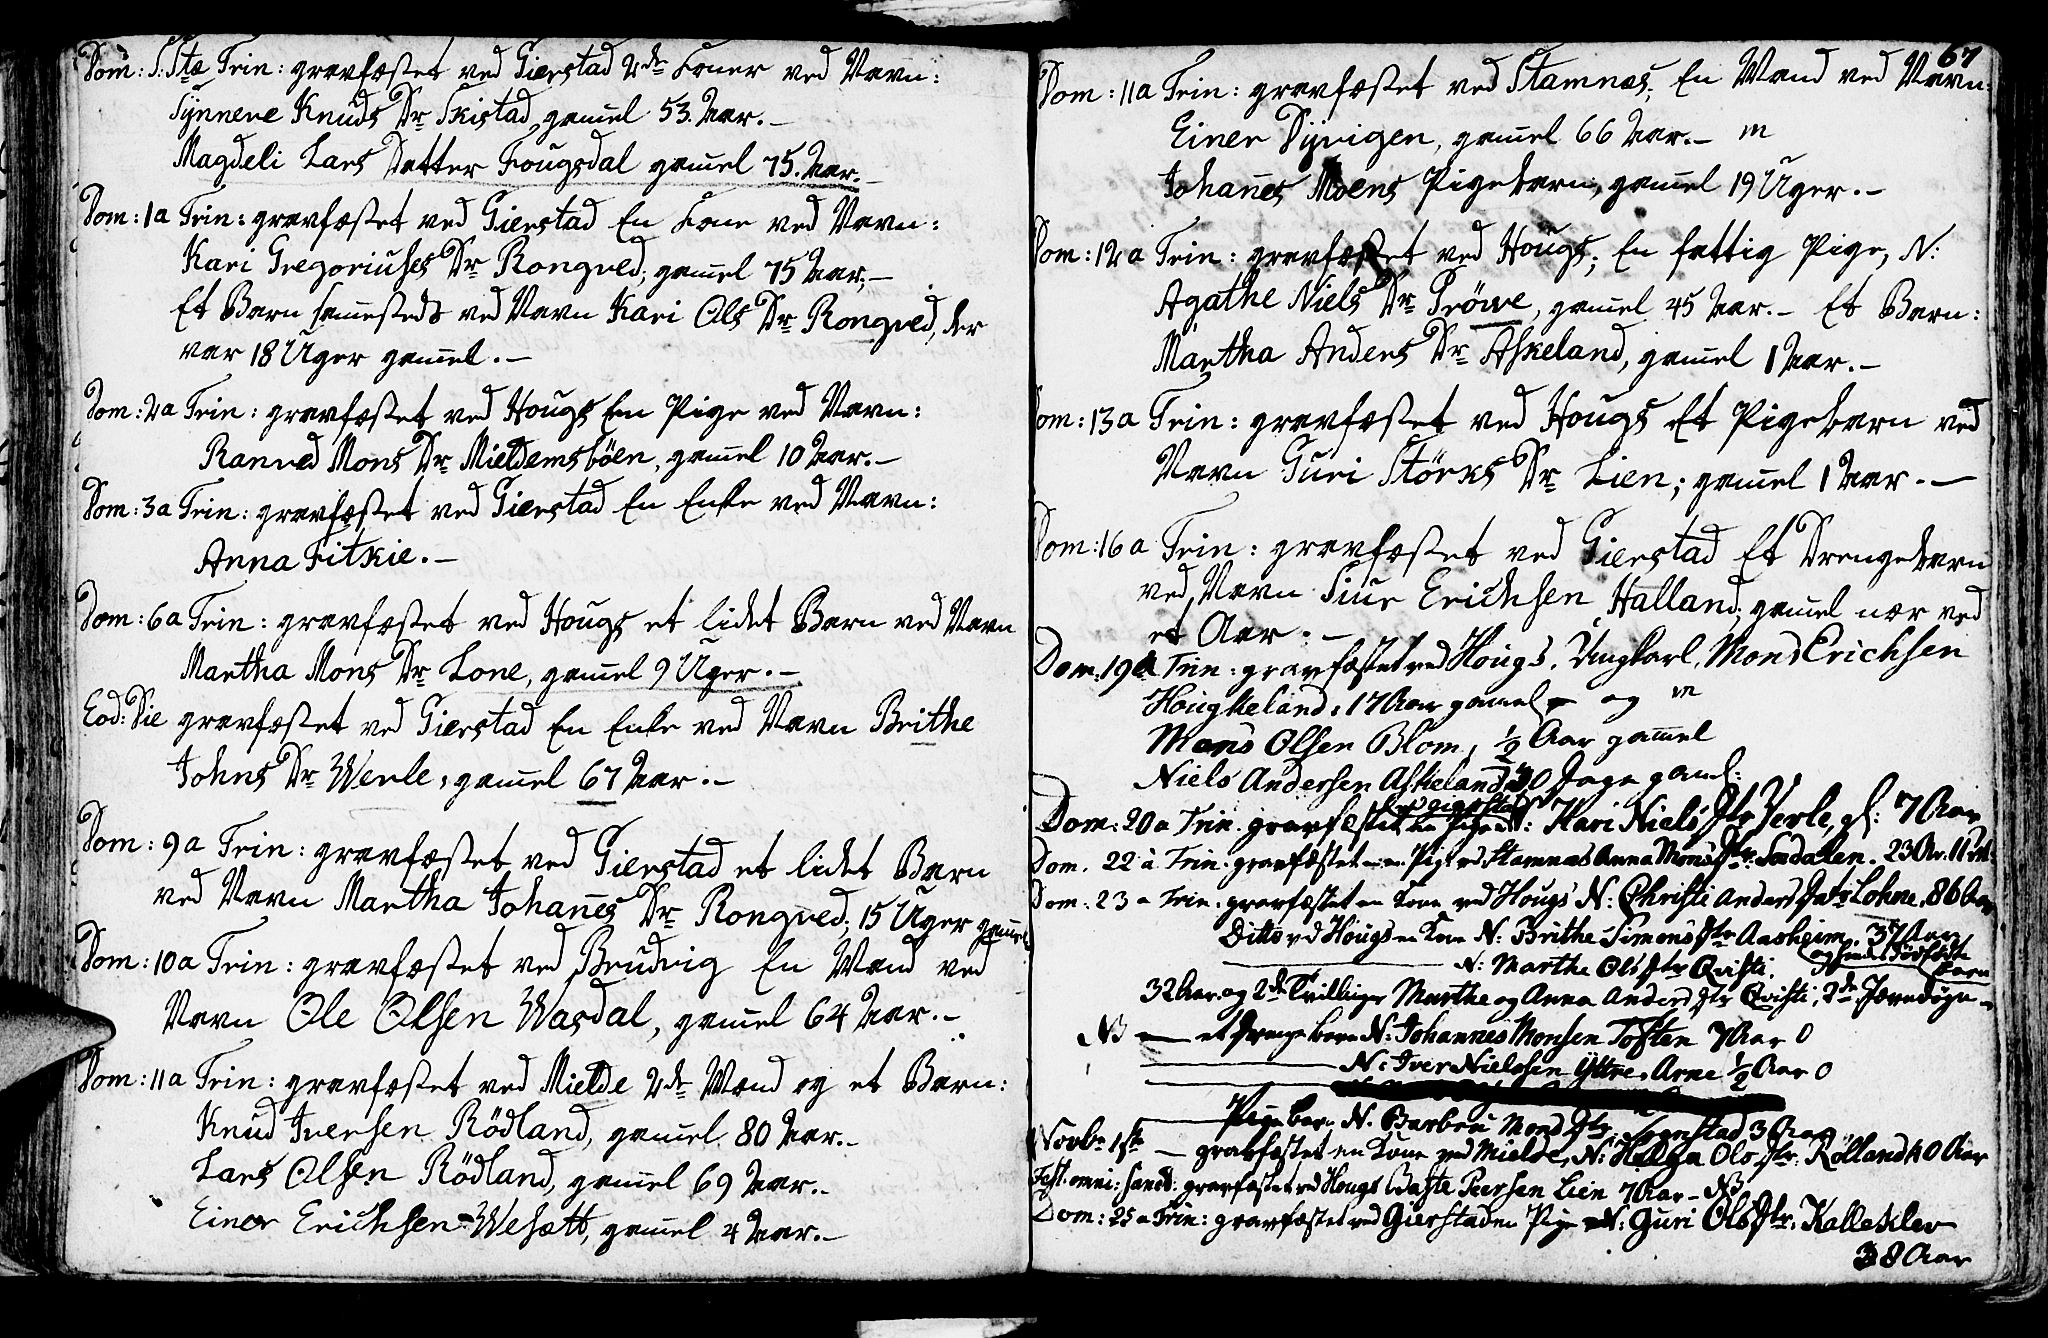 Dom: S: Stæ Trin: gravfæstet ved Gierstad 2de Koner ved Navn:
Synneve Knuds Dr Skistad, gamel 53. Aar.-
Magdeli Lars Datter Fougsdal gamel 75. Aar.-
Dom: 1 a Trin: gravfæstet ved Gierstad En Kone ved Navn:
Kari Gregoriuses Dr Rongved, gamel 75 Aar.-
Et Barn sammesteds ved Navn Kari Ols Dr Rongved, der
var 18 Uger gamel.-
Dom: 2 a Trin: gravfæstet ved Hougs En Pige ved Navn:
Ranved Mons Dr Mieldemsböen, gamel 10 Aar.-
Dom: 3 a Trin: gravfæstet ved Gierstad En Enke ved Navn:
Anna Fitkie.-
Dom: 6 a Trin: gravfæstet ved Hougs et lidet Barn ved Navn
Martha Mons Dr Lone, gamel 9 Uger.-
Eod: Die gravfæstet ved Gierstad En Enke ved Navn Brithe
Johns Dr Werle, gamel 67 Aar.-
Dom: 9 a Trin: gravfæstet ved Gierstad et lidet Barn
ved Navn Martha Johanes Dr Rongved, 15 Uger gamel
Dom: 10 a Trin: gravfæstet ved Brudvig En Mand ved
Navn Ole Olsen Wasdal, gamel 64 Aar.-
Dom: 11 a Trin: gravfæstet ved Mielde 2de Mænd og et Barn:
Knud Iversen Rödland, gamel 80 Aar.-
Lars Olsen Rödland, gamel 69 Aar.-
Einer Erichsen Wesætt, gamel 4 Aar.-
67
Dom: 11 a Trin: gravfæstet ved Stamnæs, En Mand ved Navn:
Einer Dyvigen, gamel 66 Aar.- m
Johanes Moens Pigebarn, gamel 19 Uger.-
Dom: 12 a Trin: gravfæstet ved Hougs, En fattig Pige, N:
Agathe Niels Dr Pröwe, gamel 45 Aar.- Et Barn:
Martha Anders Dr Askeland, gamel 1 Aar.-
Dom: 13 a Trin: gravfæstet ved Hougs Et Pigebarn ved
Navn Guri Störks Dr Lien, gamel 1 Aar.-
Dom: 16 a Trin: gravfæstet ved Gierstad Et Drengebarn
ved Navn Siur Erichsen Halland, gamel nær ved
et Aar.-
Dom: 19 a Trin: gravfæstet ved Hougs. Ungkarl, Mons Erichsen
Hougkeland, 17 Aar gamel og m
Mons Olsen Blom, 1/2 Aar gamel
Niels Andersen Askeland 30 Dage gaml:
Dom: 20 a Trin. gravfæstet ved Gierstad en Pige N: Kari Niels Dtr Verle, gl: 7 Aar
Dom. 22 a Trin. gravfæstet en Pige ved Stamnæs Anna Mons Dtr Sædalen. 23 Ar. 11
Dom: 23 a Trin. gravfæstet en Kone ved Hougs N: Christi Anders Datr Lohne, 86 Aar
Ditto ved Hougs en Kone N: Brithe Simons Dtr Aasheim. 37 Aar
og hendes Dödfödte Barn
N: Marthe Ols Dtr Qvisti.
32 Aar og 2de Tvillinger Marthe og Anna Anders Dtr Qvisti, 2de
NB — et Drengebarn N: Johannes Monsen Toften 7 Aar 0
N: Iver Nielssen Yttre-Arne 1/2 Aar 0
Pigebarn N. Barbra Mons Dtr Songstad 3 Aar
Novbr 1ste — gravfæstet en Kone ved Mielde, N: Helga Ols Dtr. Rölland 40 Aar
Fest: omni: sanct: gravfæstet ved Hougs Baste Peersen Lien 7 Aar - NB
Dom: 25 a Trin: gravfæstet ved Gierstad en Pige N: Guri Ols Dtr. Kalleklev
38 Aar